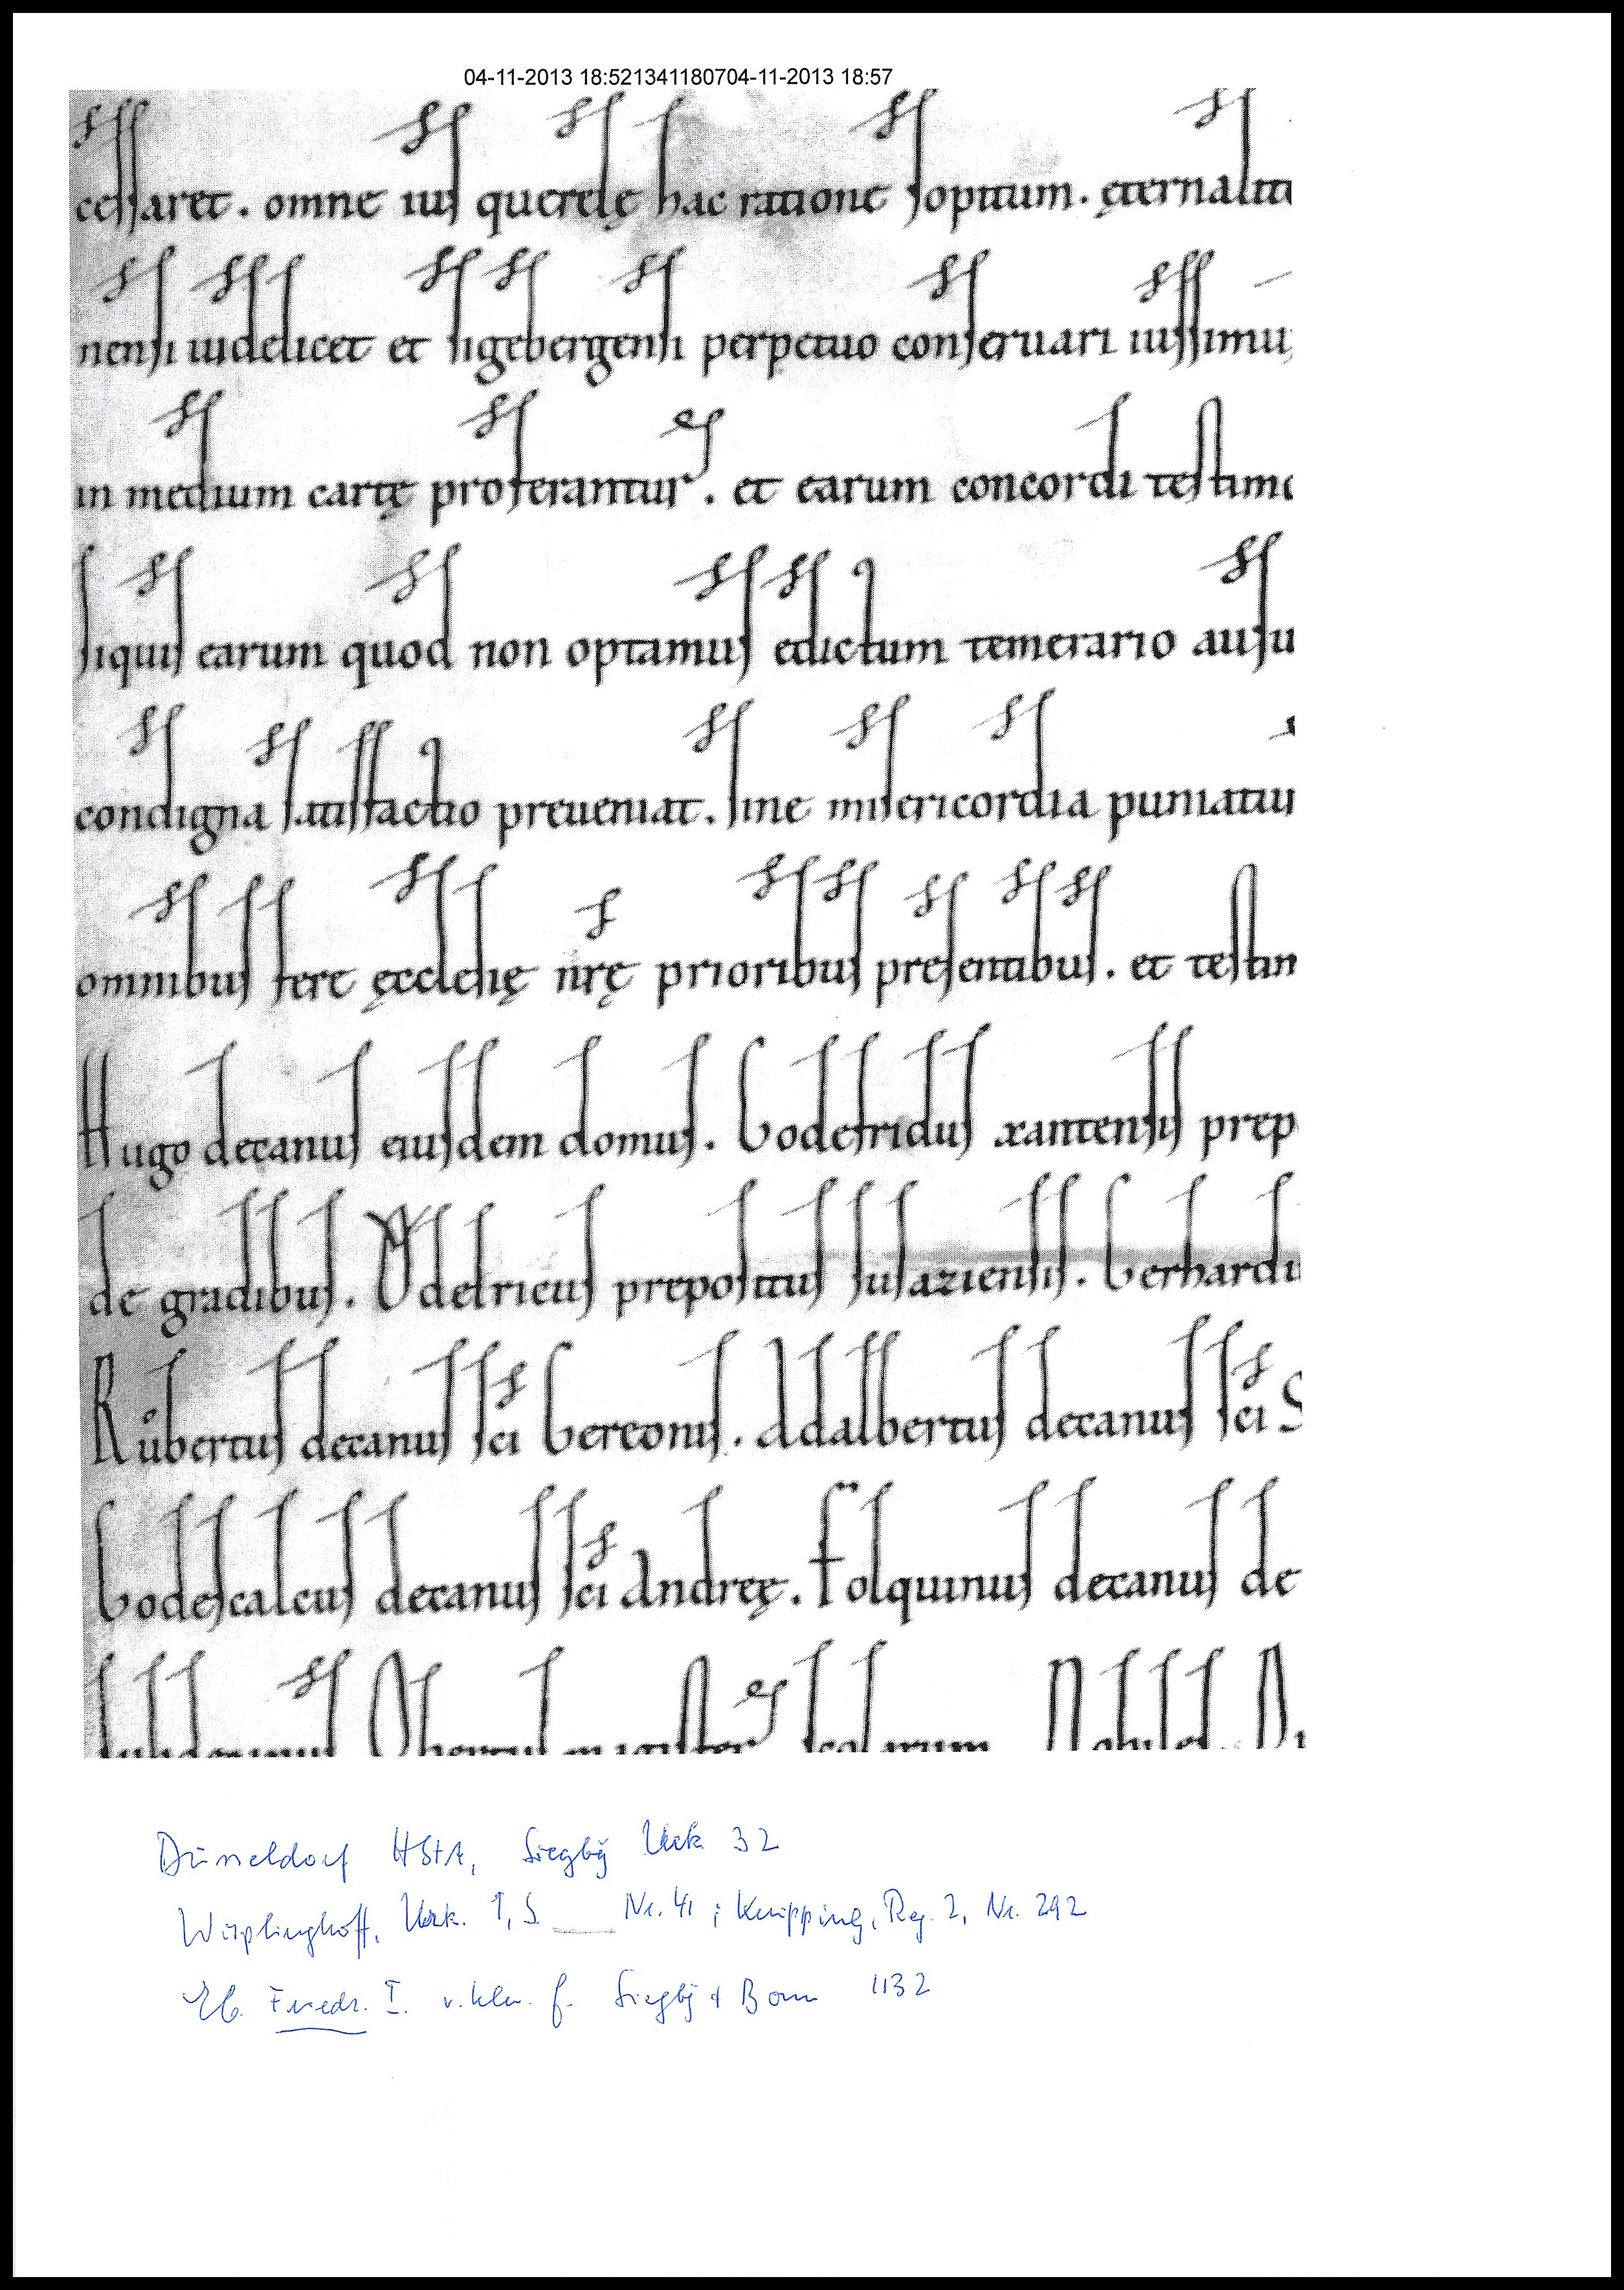 04-11-2013 18:521341180704-11-2013 18:57
cessaret. omne ius querelę hac ratione sopitum. ęternalit
nensi uidelicet et sigebergensi perpetuo conseruari iussimu
in medium cartę proferantur. et earum concordi testim
siquis earum quod non optamus edictum temerario ausu
condigna satisfactio preueniat. sine misericordia puniatur
omnibus fere ęcclesię nrę prioribus presentibus. et testim
Hugo decanus eiusdem domus. Godefridus xantensis prep
de gradibus. Ǒdelricus prepositus susaziensis. Gerhardu
Růbertus decanus sci Gereonis. Adalbertus decanus sci S
Godescalcus decanus sci Andreę. Folquinus decanus de
subdecanus Obertus magister scolarum Nobiles
Düsseldorf HStA, Siegbg Urk 32
Wisplinghoff, Urk. 1, S. Nr. 41; Knipping, Reg. 2, Nr. 292
Eb. Friedr. I. v. Köln f. Siegbg + Bonn 1132